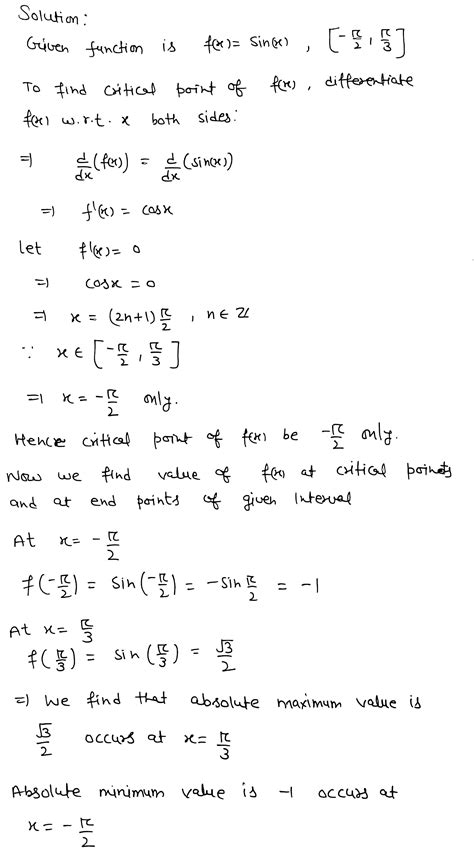 Solution:
Given function is f(x) = Sin(x) , [-π/2, π/3]
To find critical point of f(x), differentiate
f(x) w.r.t. x both sides:
⇒ d/dx (f(x)) = d/dx (sin(x))
⇒ f'(x) = cosx
let f'(x) = 0
⇒ cosx = 0
⇒ x = (2n+1) π/2 , n ∈ ℤ
∵ x ∈ [-π/2, π/3]
⇒ x = -π/2 only.
Hence critical point of f(x) be -π/2 only.
Now we find value of f(x) at critical points
and at end points of given Interval
At x = -π/2
f(-π/2) = Sin(-π/2) = -Sin π/2 = -1
At x = π/3
f(π/3) = Sin(π/3) = √3/2
⇒ We find that absolute maximum value is
√3/2 occurs at x = π/3
Absolute minimum value is -1 occurs at
x = -π/2